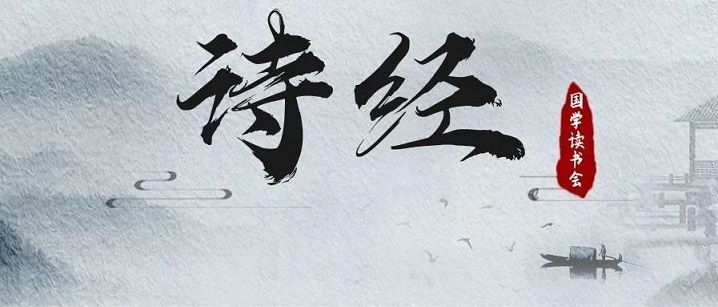 诗经
国学读书会